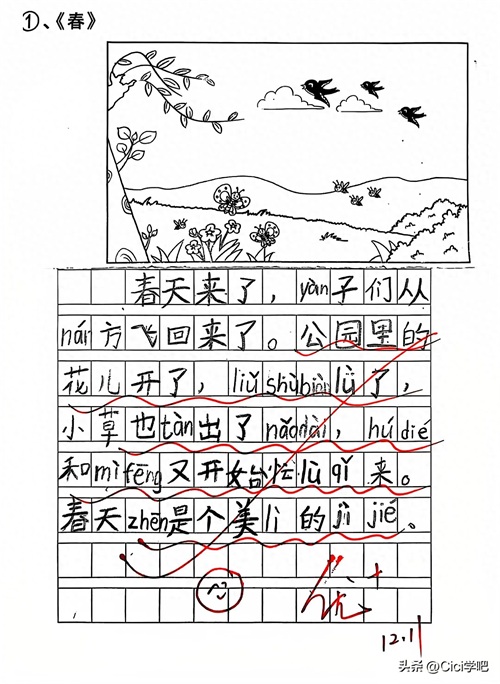 ①、《春》
春天来了，yàn子们从
nán方飞回来了。公园里的
花儿开了，liǔ shù biàn lǜ了，
小草也tàn出了nǎodài，hú dié
和mì fēng又开始忙lù qǐ来。
春天zhēn是个美lì的jì jié。
优+
12.11
头条 @Cici学吧